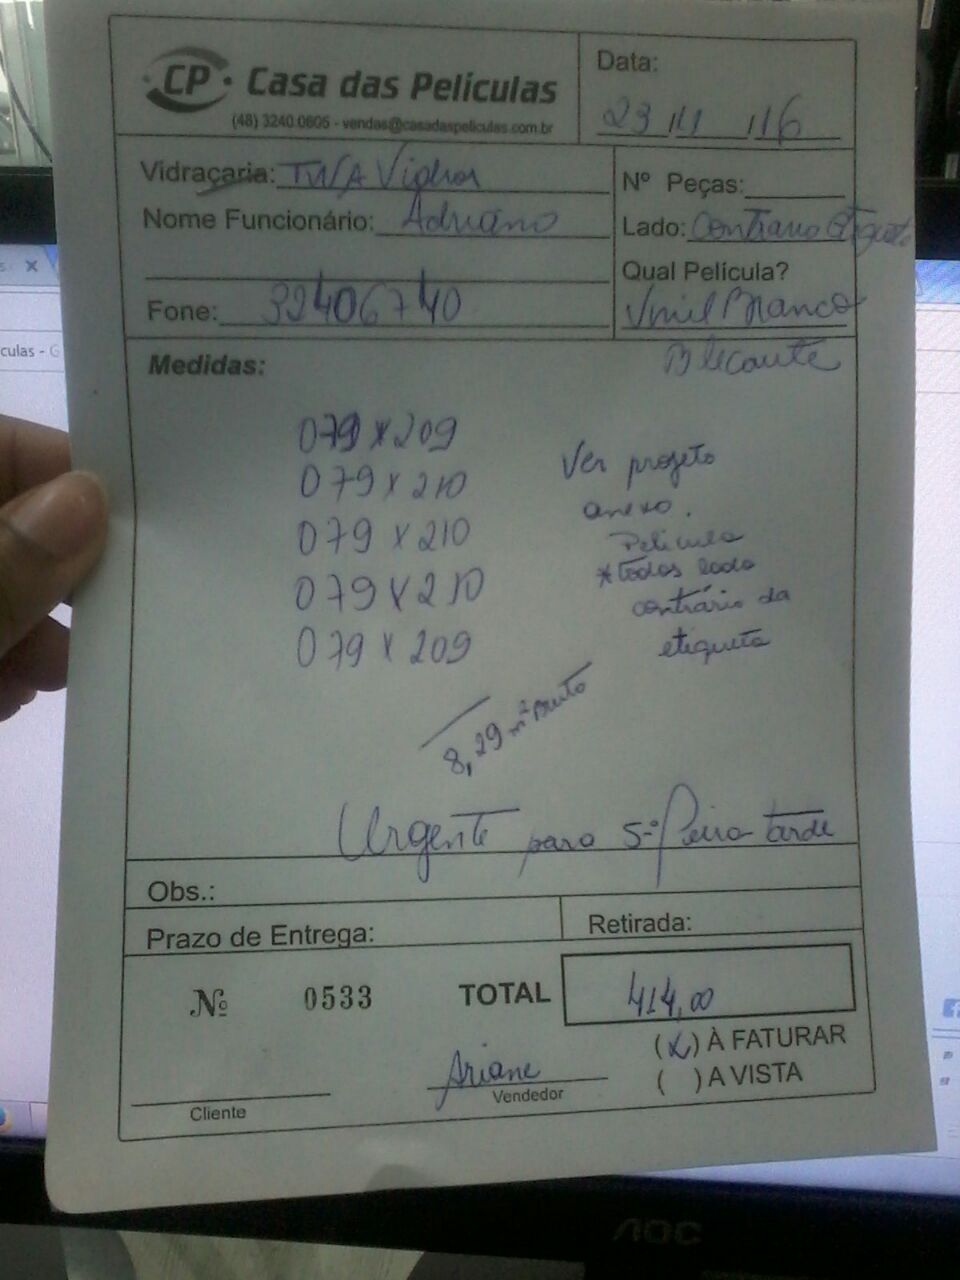 CP Casa das Películas
(48) 3240.0606 - vendas@casadaspeliculas.com.br
Data:
23/11/16
Vidraçaria: TWA Vidros
Nº Peças:
Nome Funcionário: Adriano
Lado: Contrario Etiqueta
Qual Película?
Fone: 32406740
Vinil Branco
Blecaute
Medidas:
079 x 209
079 x 210
079 x 210
079 x 210
079 x 209
Ver projeto
anexo.
Pelicula
*todos lado
contrário da
etiqueta
8,29 m² Bruto
Urgente para 5ª Feira tarde
Obs.:
Prazo de Entrega:
Retirada:
Nº 0533
TOTAL 414,00
(x) À FATURAR
( ) A VISTA
Ariane
Cliente
Vendedor
culas - G
AOC